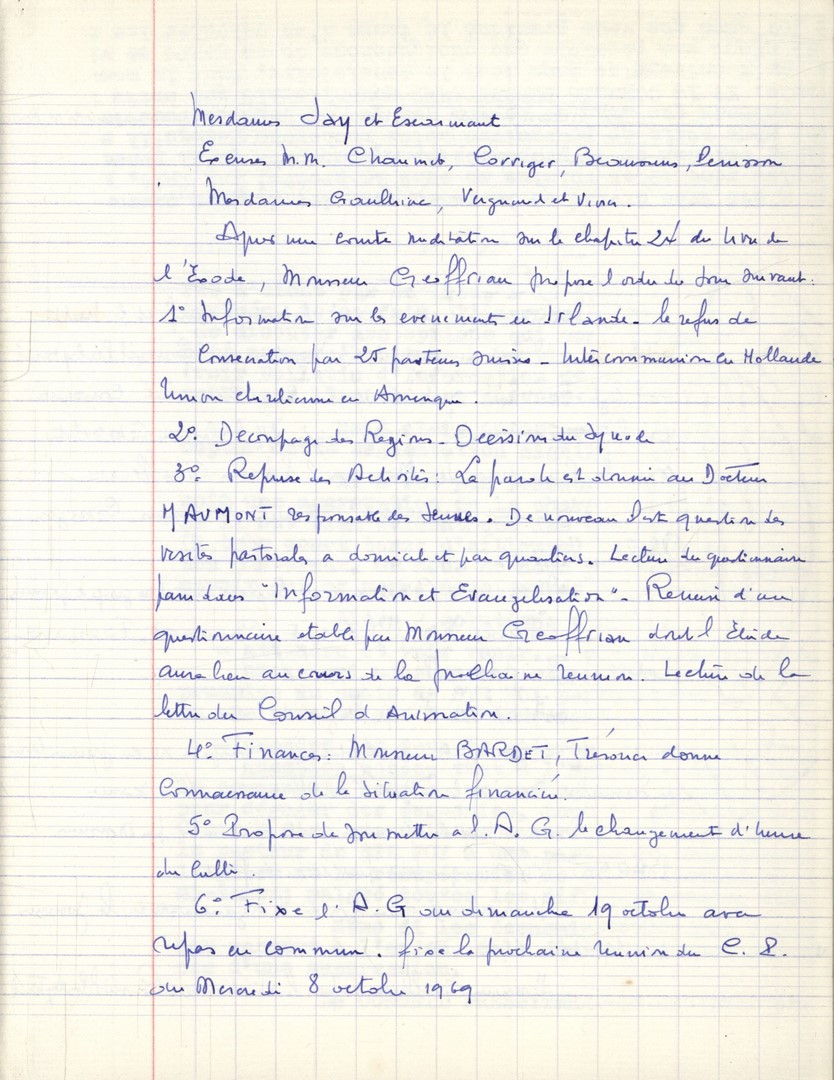 Mesdames Jay et Escarmant
Excuses M.M. Chaumet, Corriger, Beauvours,
Mesdames Gaulhiac, Vergnaud et Vivier.
Après une courte méditation sur le chapitre 24 du livre de
l'Exode, Monsieur Geoffriau propose l'ordre du jour suivant:
1° Information sur les evenements en Irlande - le refus de
Consecration par 25 pasteurs suisses - Intercommunion en Hollande
Union chretienne en Amerique.
2°. Decoupage des Regions - Decision du Synode
3°. Reprise des Activités: La parole est donnée au Docteur
MAUMONT responsable des Jeunes. De nouveau il est question des
visites pastorales a domicile et par quartiers. Lecture du questionnaire
paru dans "Information et Evangelisation" - Remise d'un
questionnaire etabli par Monsieur Geoffriau dont l'Etude
aura lieu au cours de la prochaine reunion. Lecture de la
lettre du Conseil d'Animation.
4°. Finances: Monsieur BARDET, Trésorier donne
Connaissance de la situation financière.
5° Propose de soumettre a l'A.G. le changement d'heure
du Culte.
6°. Fixe l'A.G au dimanche 19 octobre avec
repas en commun. fixe la prochaine reunion du C.P.
au Mercredi 8 octobre 1969